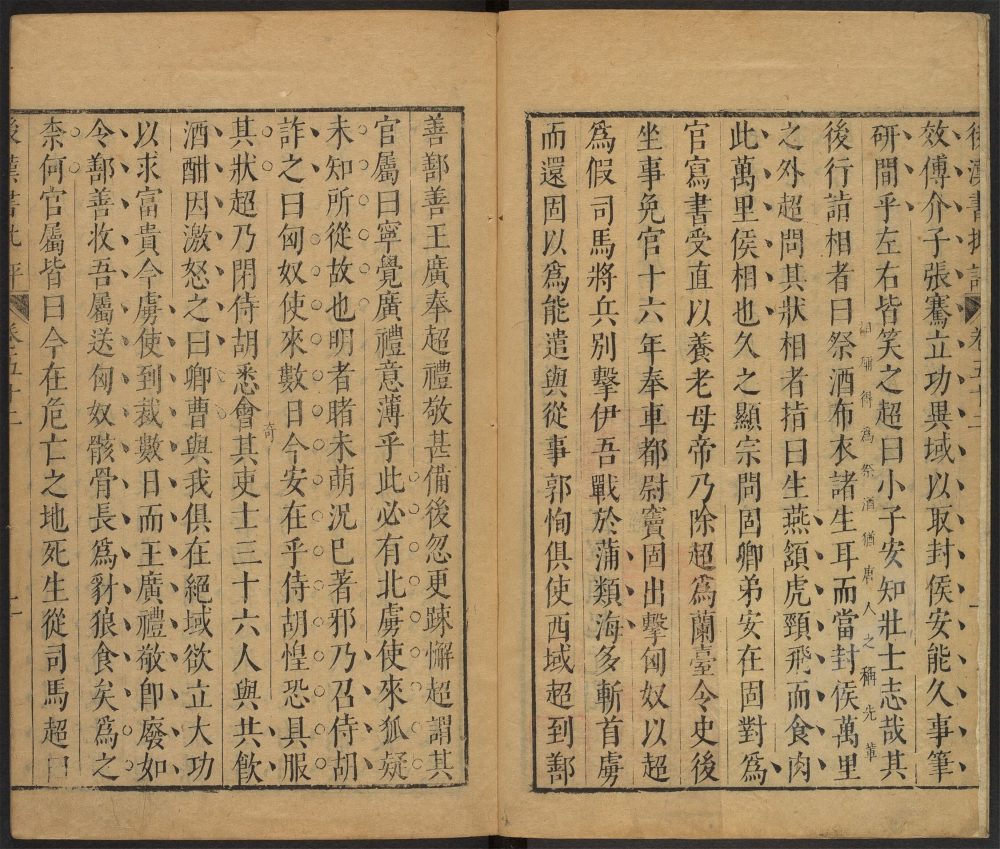 後漢書批評 卷五十二
效傅介子張騫立功異域以取封侯安能久事筆
研間乎左右皆笑之超曰小子安知壯士志哉其
布衣得爲祭酒猶唐人之稱先輩
後行詣相者曰祭酒布衣諸生耳而當封侯萬里
之外超問其狀相者指曰生燕頷虎頸飛而食肉
此萬里侯相也久之顯宗問固卿弟安在固對爲
官寫書受直以養老母帝乃除超爲蘭臺令史後
坐事免官十六年奉車都尉竇固出擊匈奴以超
爲假司馬將兵別擊伊吾戰於蒲類海多斬首虜
而還固以爲能遣與從事郭恂俱使西域超到鄯
善鄯善王廣奉超禮敬甚備後忽更踈懈超謂其
官屬曰寧覺廣禮意薄乎此必有北虜使來狐疑
未知所從故也明者睹未萌況巳著邪乃召侍胡
詐之曰匈奴使來數日今安在乎侍胡惶恐具服
奇
其狀超乃閉侍胡悉會其吏士三十六人與共飮
酒酣因激怒之曰卿曹與我俱在絕域欲立大功
以求富貴今虜使到裁數日而王廣禮敬卽廢如
令鄯善收吾屬送匈奴骸骨長爲豺狼食矣爲之
柰何官屬皆曰今在危亡之地死生從司馬超曰
後漢書批評 卷五十二